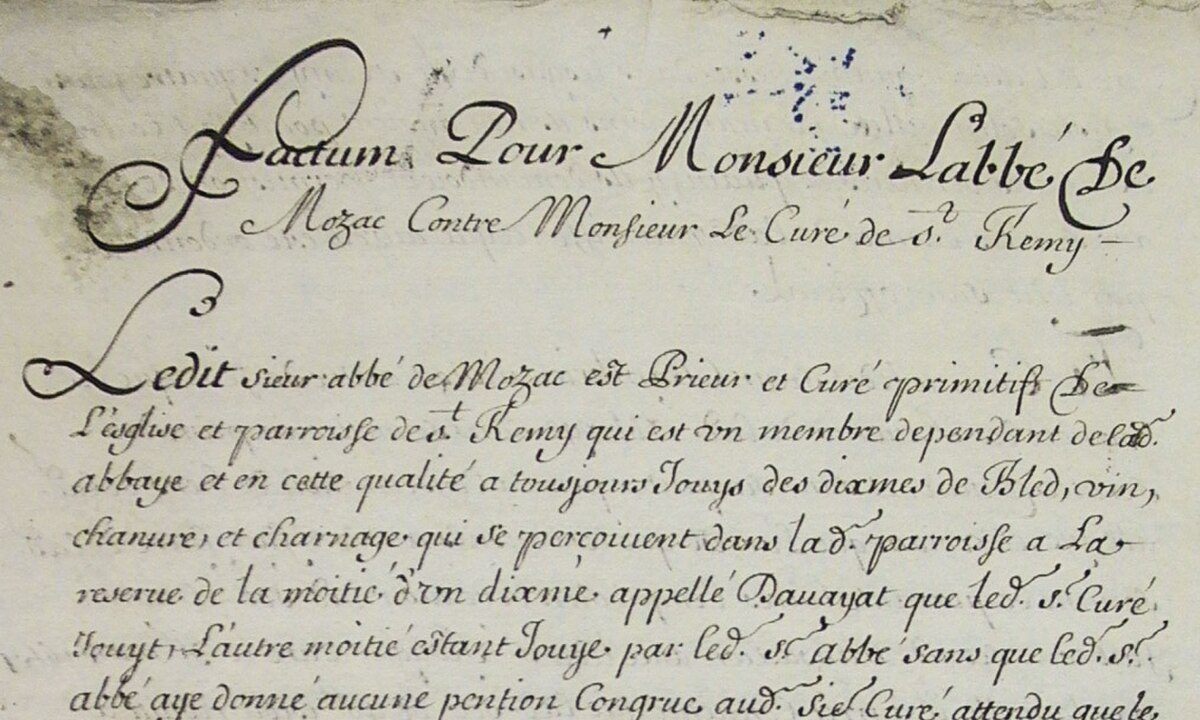 Factum Pour Monsieur Labbé De
Mozac Contre Monsieur Le Curé de st. Remy
Ledit sieur abbé de Mozac est Prieur et Curé primitif De
L'esglise et parroisse de st. Remy qui est vn membre dependant de lad.
abbaye et en cette qualité a tousjours Jouys des dixmes de Bled, vin,
chanure, et charnage qui se perçoiuent dans lad. parroisse a La
reserue de la moitié d'vn dixme appellé Dauayat que led. sr. Curé
Jouyt, L'autre moitié estant Jouye par led. sr. abbé sans que led. sr.
abbé aye donné aucune pention Congrue aud. sieur Curé attendu que le